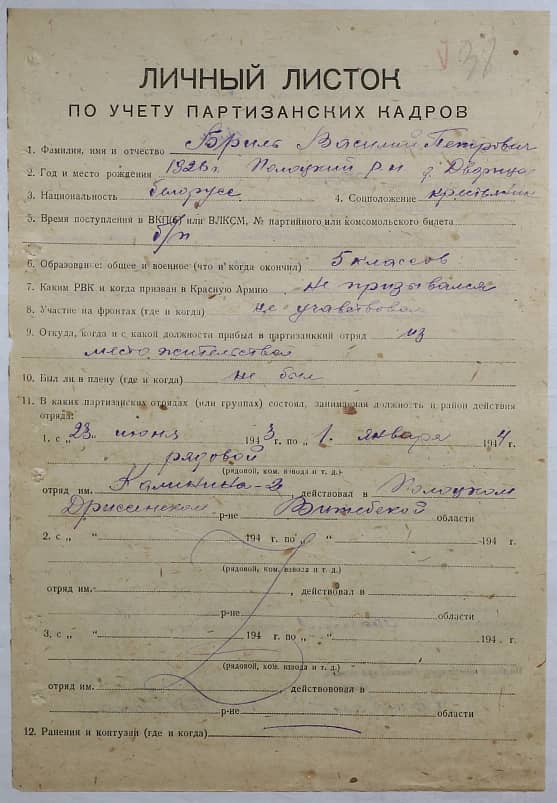 38
ЛИЧНЫЙ ЛИСТОК
ПО УЧЕТУ ПАРТИЗАНСКИХ КАДРОВ
1. Фамилия, имя и отчество Бриль Василий Петрович
2. Год и место рождения 1926 г. Полоцкий р-н д.
3. Национальность белорусс 4. Соцположение крестьянин
5. Время поступления в ВКП(б) или ВЛКСМ, № партийного или комсомольского билета
б/п
6. Образование: общее и военное (что и когда окончил) 5 классов
7. Каким РВК и когда призван в Красную Армию не призывался
8. Участие на фронтах (где и когда) не учавствовал
9. Откуда, когда и с какой должности прибыл в партизанкий отряд из
место жительства
10. Был ли в плену (где и когда) не был
11. В каких партизанских отрядах (или группах) состоял, занимаемая должность и район действия
отряда:
1. с „23" июня 1943 г. по „1. января 1944 г.
рядовой
(рядовой, ком. взвода и т. д.)
отряд им. Калинина-3, действовал в Полоцком
Дриссенском р-не Витебской области
2. с „ " 194 г. по „ " 194 г.
(рядовой, ком. взвода и т. д.)
отряд им. , действовал в
р-не области
3. с „ " 194 г. по „ " 194 г.
(рядовой, ком. взвода и т. д.)
отряд им. , действововал в
р-не области
12. Ранения и контузии (где и когда)